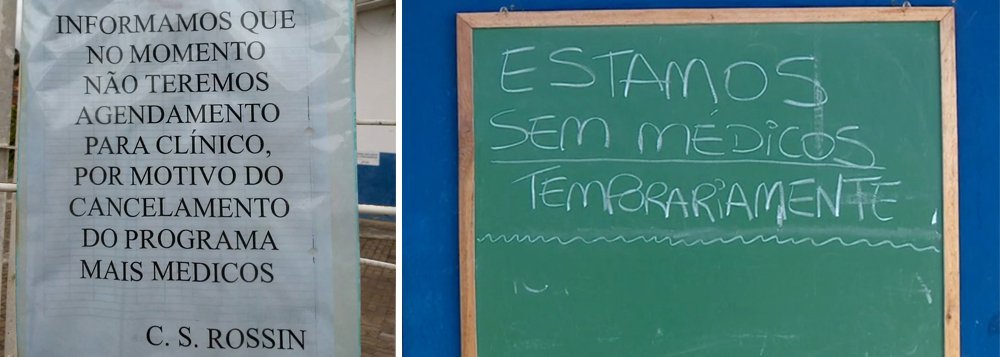 INFORMAMOS QUE
NO MOMENTO
NÃO TEREMOS
AGENDAMENTO
PARA CLÍNICO,
POR MOTIVO DO
CANCELAMENTO
DO PROGRAMA
MAIS MEDICOS
C. S. ROSSIN
ESTAMOS
SEM MÉDICOS
TEMPORARIAMENTE